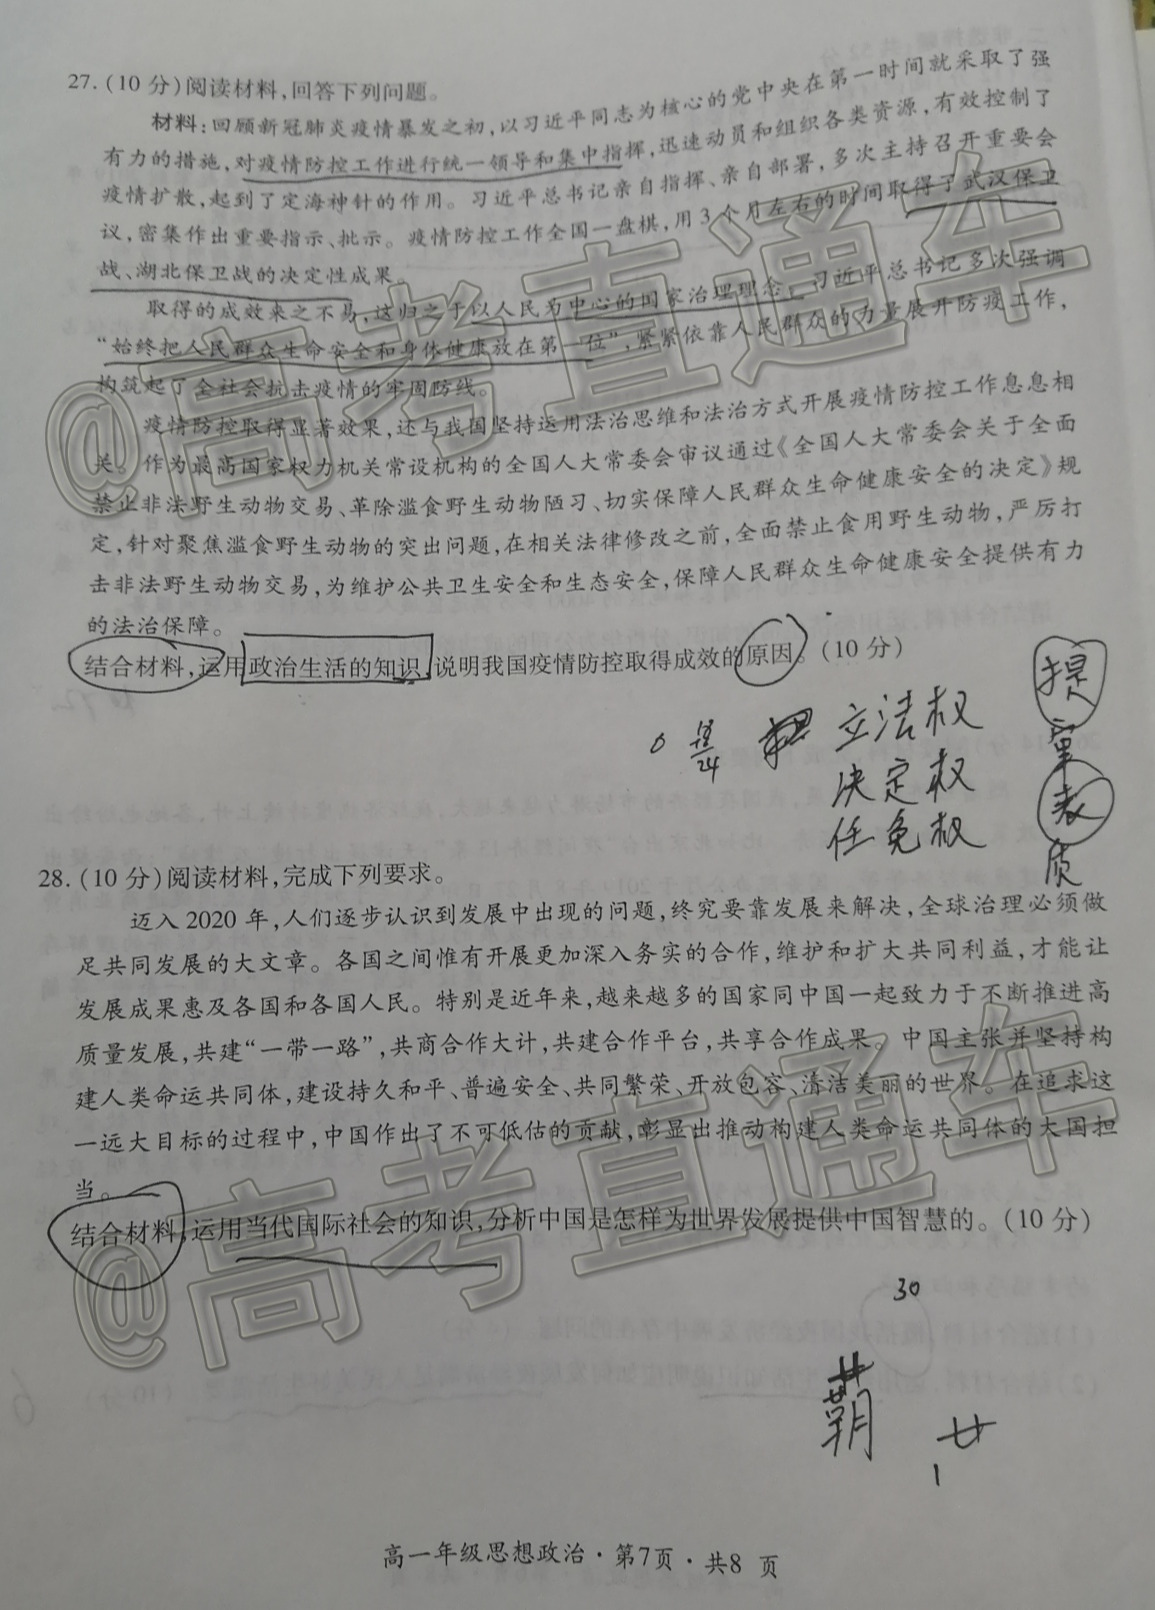 27.(10 分)阅读材料,回答下列问题。
材料:回顾新冠肺炎疫情暴发之初,以习近平同志为核心的党中央在第一时间就采取了强
有力的措施,对疫情防控工作进行统一领导和集中指挥,迅速动员和组织各类资源,有效控制了
疫情扩散,起到了定海神针的作用。习近平总书记亲自指挥、亲自部署,多次主持召开重要会
议,密集作出重要指示、批示。疫情防控工作全国一盘棋,用3个月左右的时间取得了武汉保卫
战、湖北保卫战的决定性成果。
取得的成效来之不易,这归之于以人民为中心的国家治理理念。习近平总书记多次强调
“始终把人民群众生命安全和身体健康放在第一位”,紧紧依靠人民群众的力量展开防疫工作,
构筑起了全社会抗击疫情的牢固防线。
疫情防控取得显著效果,还与我国坚持运用法治思维和法治方式开展疫情防控工作息息相
关。作为最高国家权力机关常设机构的全国人大常委会审议通过《全国人大常委会关于全面
禁止非法野生动物交易、革除滥食野生动物陋习、切实保障人民群众生命健康安全的决定》规
定,针对聚焦滥食野生动物的突出问题,在相关法律修改之前,全面禁止食用野生动物,严厉打
击非法野生动物交易,为维护公共卫生安全和生态安全,保障人民群众生命健康安全提供有力
的法治保障。
结合材料,运用政治生活的知识,说明我国疫情防控取得成效的原因。(10 分)
立法权
决定权
任免权
提
审
表
质
28.(10 分)阅读材料,完成下列要求。
迈入 2020 年,人们逐步认识到发展中出现的问题,终究要靠发展来解决,全球治理必须做
足共同发展的大文章。各国之间惟有开展更加深入务实的合作,维护和扩大共同利益,才能让
发展成果惠及各国和各国人民。特别是近年来,越来越多的国家同中国一起致力于不断推进高
质量发展,共建“一带一路”,共商合作大计,共建合作平台,共享合作成果。中国主张并坚持构
建人类命运共同体,建设持久和平、普遍安全、共同繁荣、开放包容、清洁美丽的世界。在追求这
一远大目标的过程中,中国作出了不可低估的贡献,彰显出推动构建人类命运共同体的大国担
当。
结合材料,运用当代国际社会的知识,分析中国是怎样为世界发展提供中国智慧的。(10 分)
30
@高考直通车
@高考直通车
高一年级思想政治·第7页·共8 页